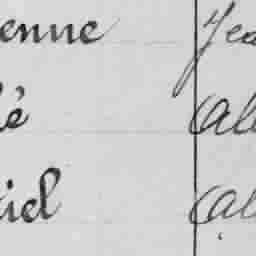 enne Jea
é Al
iel Al